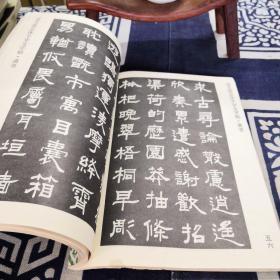 求古尋論散慮逍遥
欣奏累遣感謝歡招
渠荷的歷園莽抽條
枇杷晚翠梧桐早彫
五六
獨運凌摩絳霄
耽讀翫市寓目囊箱
易輶攸畏屬耳垣牆